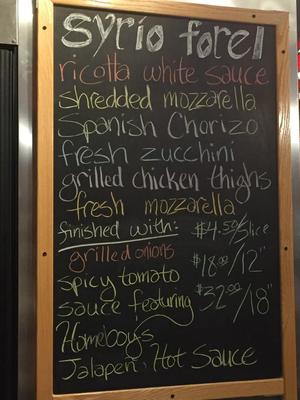 syrio forel
ricotta white sauce
shredded mozzarella
Spanish Chorizo
fresh zucchini
grilled chicken thighs
fresh mozzarella
finished with: $4.50/slice
grilled onions $18.00/12"
spicy tomato
sauce featuring $32.00/18"
Homeboy's
Jalapen. Hot Sauce